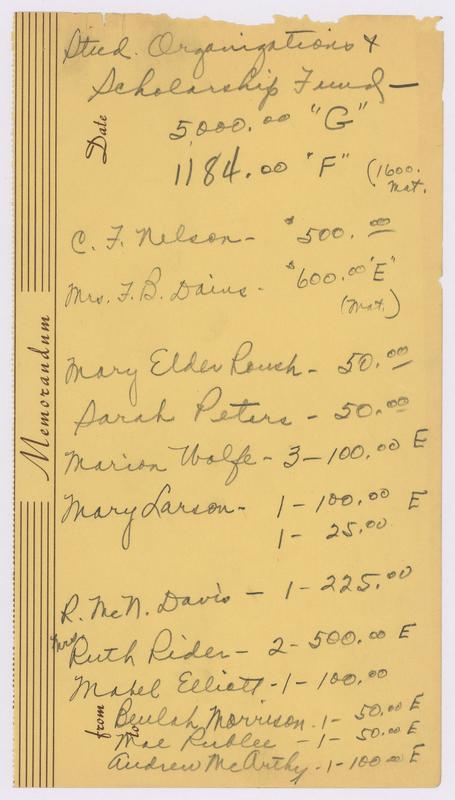 Memorandum
Date
Stud. Organizations &
Scholarship Fund —
5,000.00 "G"
1184.00 "F" (1600.
Mat.
C. F. Nelson - $500.00
Mrs. F. B. Dains - $600.00 "E"
(Mat.)
Mary Elder Roush - 50.00
Sarah Peters - 50.00
Marion Wolfe - 3 - 100.00 E
Mary Larson - 1 - 100.00 E
1 - 25.00
R. McN. Davis - 1 - 225.00
Mrs Ruth Rider - 2 - 500.00 E
Mabel Elliott - 1 - 100.00
from
to
Beulah Morrison - 1 - 50.00 E
Mae Rublee - 1 - 50.00 E
Andrew McArthy - 1 - 100.00 E